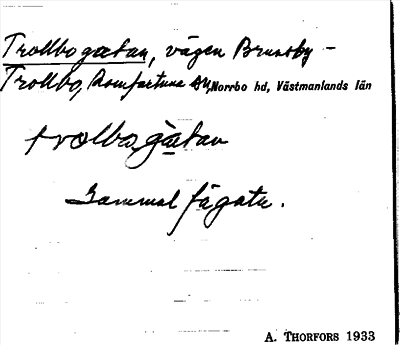 Trollbogatan, vägen Brunnby –
Trollbo, Romfartuna sn, Norrbo hd, Västmanlands län
trolbogàtan
Gammal fägata.
A. THORFORS 1933